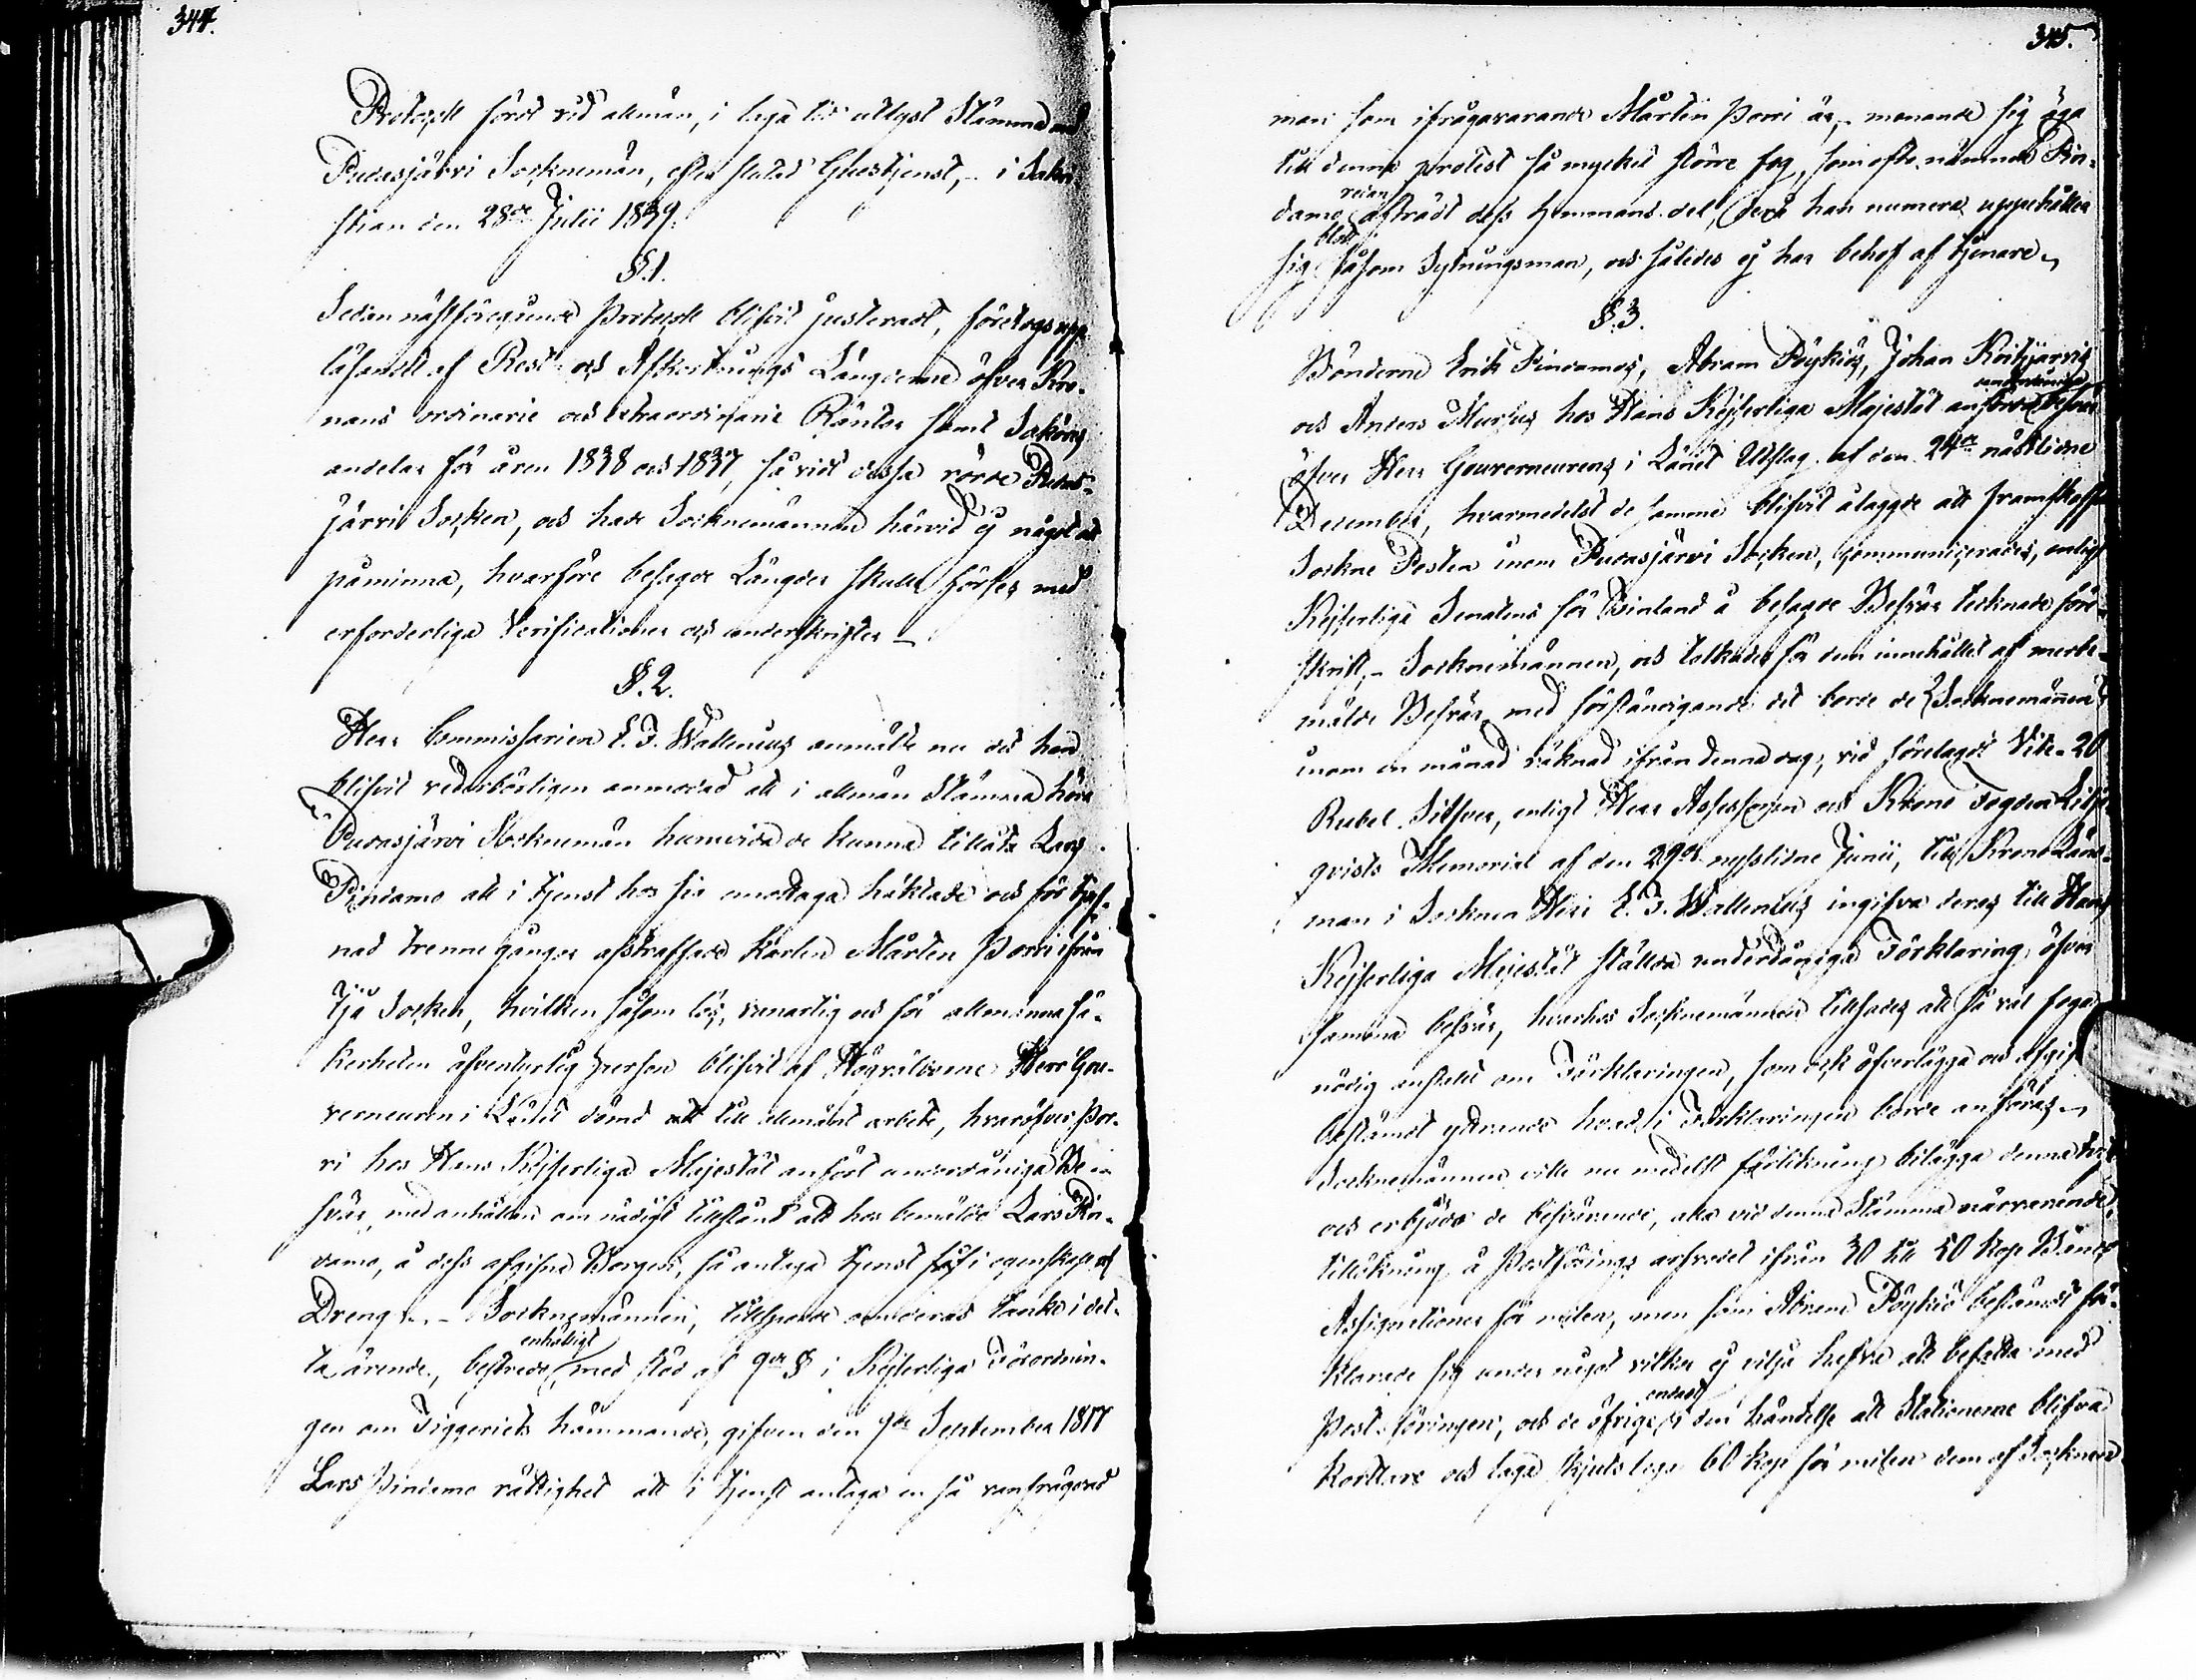 344.
Protocoll fördt vid allmän, i laga tid utlyst Stämma med
Pudasjärvi Socknemän, efter slutad Gudstjenst, - i Sakri-
stian den 28de Julii 1839.
§.1.
Sedan nästföregående Protocoll blifvit justeradt, företogs upp-
läsandet af Rest- och Afkortnings Längderne öfver Kro-
nans ordinarie och extraordinarie Räntor samt Saköres
andelar för åren 1838 och 1837, så vidt dessa rörde Pudas-
järvi Socken, och hade Socknemännen härvid ej något att
påminna, hvarföre besagde Längder skulle förses med
erforderliga Verificationer och underskrifter –
§.2.
Herr Commissarien E. J. Wallenius anmälte nu det han
blifvit vederbörligen anmodad att i allmän Stämma höra
Pudasjärvi Socknemän huruvida de kunna tillåta Lars
Pindamo att i tjenst hos sig emottaga häktade och för tjuf-
nad trenne gånger afstraffade Karlen Mårten Porri ifrån
Ijå Socken, hvilken såsom lös, vanartig och för allmänna sä-
kerheten äfventyrlig person blifvit af Högvälborne Herr Gou-
verneuren i Länet dömd att till allmänt arbete, hvaröfver Por-
ri hos Hans Kejserliga Majestät anfört underdåniga Be-
svär, med anhållan om nådigt tillstånd att hos bemälde Lars Pin-
damo, å dess afgifna Borgen, få antaga tjenst i egenskap af
Dreng. - Socknemännen, tillsporde om deras tanke i det-
ta ärende, bestredo enhälligt med stöd af 9de § i Kejserliga Förordnin-
gen om Tiggeriets hämmande, gifven den 9de September 1817
Lars Pindamo rättighet att i tjenst antaga en så vanfrägdad
345.
man som ifrågavarande Mårten Porri är, - menande sig äga
till denna protest så mycket större fog, som ofta nämnde Pin-
damo redan afträdt dess hemmans del, der han numera uppehåller
sig blott såsom Sytningsman, och således ej har behof af tjenare –
§.3.
Bönderne Erik Pindamos, Abram Pöykiös, Johan Kosijärvis
och Anders Mursus hos Hans Kejserliga Majestät anförde underdåniga besvär
öfver Herr Gouverneurens i Länet Utslag af den 24de nästledne
December, hvarmedelst de samma blifvit ålagde att framskaffa
Sockne Posten inom Pudasjärvi Socken, communicerades, enligt
Kejserliga Senatens för Finland å besagde Besvär tecknade före-
skrift, - Socknemännen, och tolkades för dem innehållet af merbe-
mälde Besvär, med förständigande det borde de Socknemännen
inom en månad räknad ifrån denna dag, vid förelagdt Vite - 20
Rubel Silfver, enligt Herr Assessoren och Krono Fogden Lilje-
qvists Memorial af den 29de nysslidne Junii, till Krono Läns-
man i Socknen Herr E. J. Wallenius ingifva deras till Hans
Kejserliga Majestät ställda underdåniga Förklaring öfver
samma besvär, hvarhos Socknemännen tillsades att så väl foga
nödig anstalt om Förklaringen, som ock öfverlägga och afgif-
bestämdt yttrande hvad i Förklaringen borde anföras –
Socknemännen ville nu medelst förlikning bilägga denna tvist
och erbjödo de besvärande, alla vid denna Stämma närvarande,
tillökning å Postförings arfvodet ifrån 30 till 50 kop. Banco
Assignationer för milen, men som Abram Pöykiö bestämdt för-
klarade sig under något vilkor ej vilja hafva att befatta med
Post-föringen, och de öfrige endast i den händelse att Stationerne blifva
kortare och laga skjutslega 60 kop för milen dem af Socknen